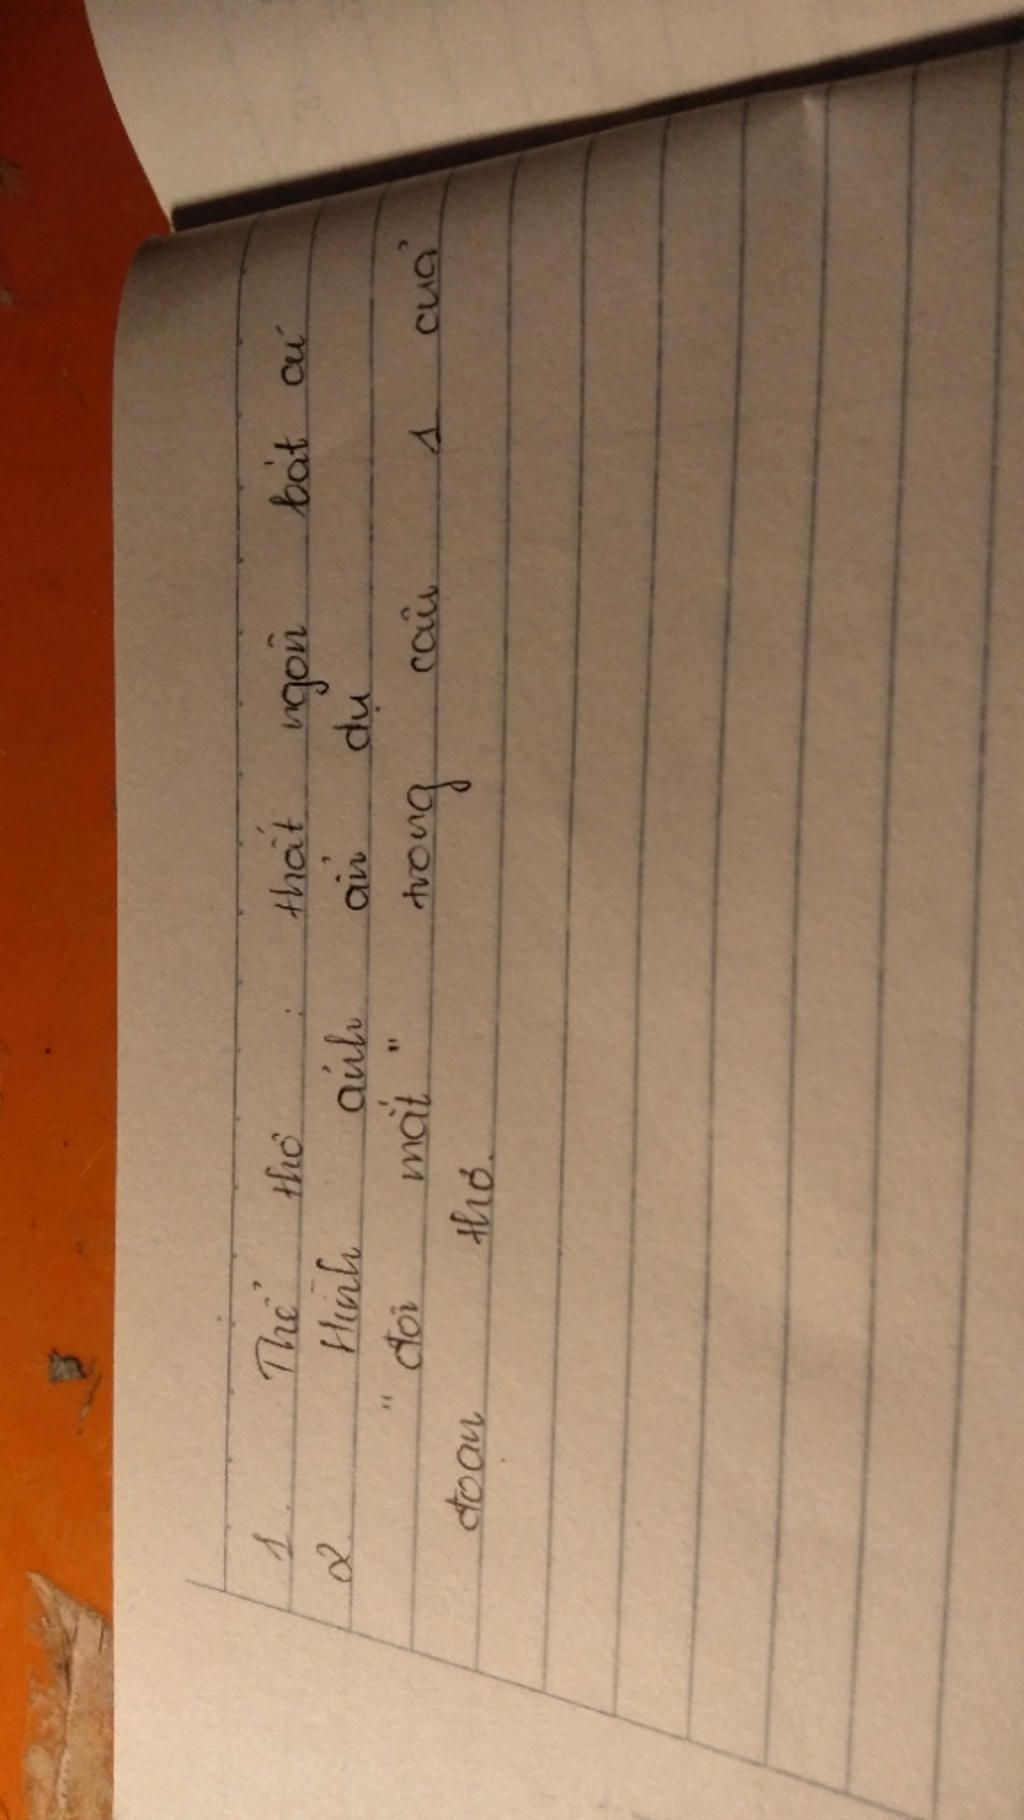 1. Thể thơ : thất ngôn bát cú
2. Hình ảnh ẩn dụ
" đôi mắt " trong câu 1 của
đoạn thơ.